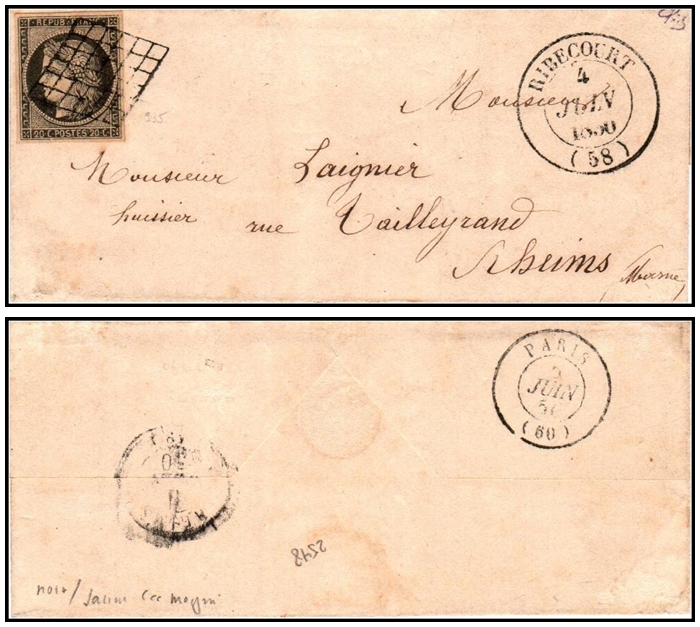 REPUB FRANC
20·C POSTES 20·C
RIBECOURT
4
JUIN
1850
(58)
Monsieur
935
Monsieur Laignier
huissier rue Tailleyrand
Rheims
Marne
PARIS
JUIN
50
(60)
2548
noir/